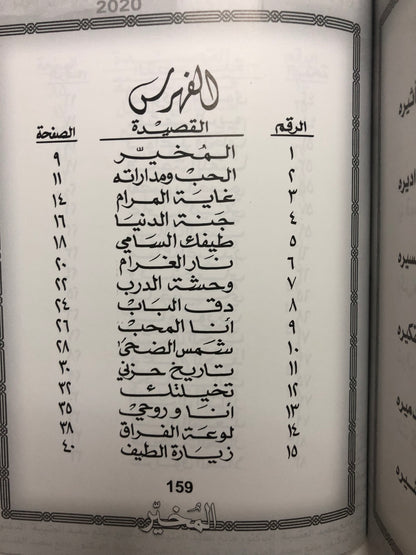 2020
الفهرس
الرقم القصيدة الصفحة
١ المُخيَّر ٩
٢ الحب ومداراته ١١
٣ غاية المرام ١٤
٤ جنة الدنيا ١٦
٥ طيفك السامي ١٨
٦ نار الغرام ٢٠
٧ وحشة الدرب ٢٢
٨ دق الباب ٢٤
٩ أنا المحب ٢٦
١٠ شمس الضحى ٢٨
١١ تاريخ حزني ٣٠
١٢ تخيلتك ٣٢
١٣ أنا وروحي ٣٥
١٤ لوعة الفراق ٣٨
١٥ زيارة الطيف ٤٠
159
المُخيَّر